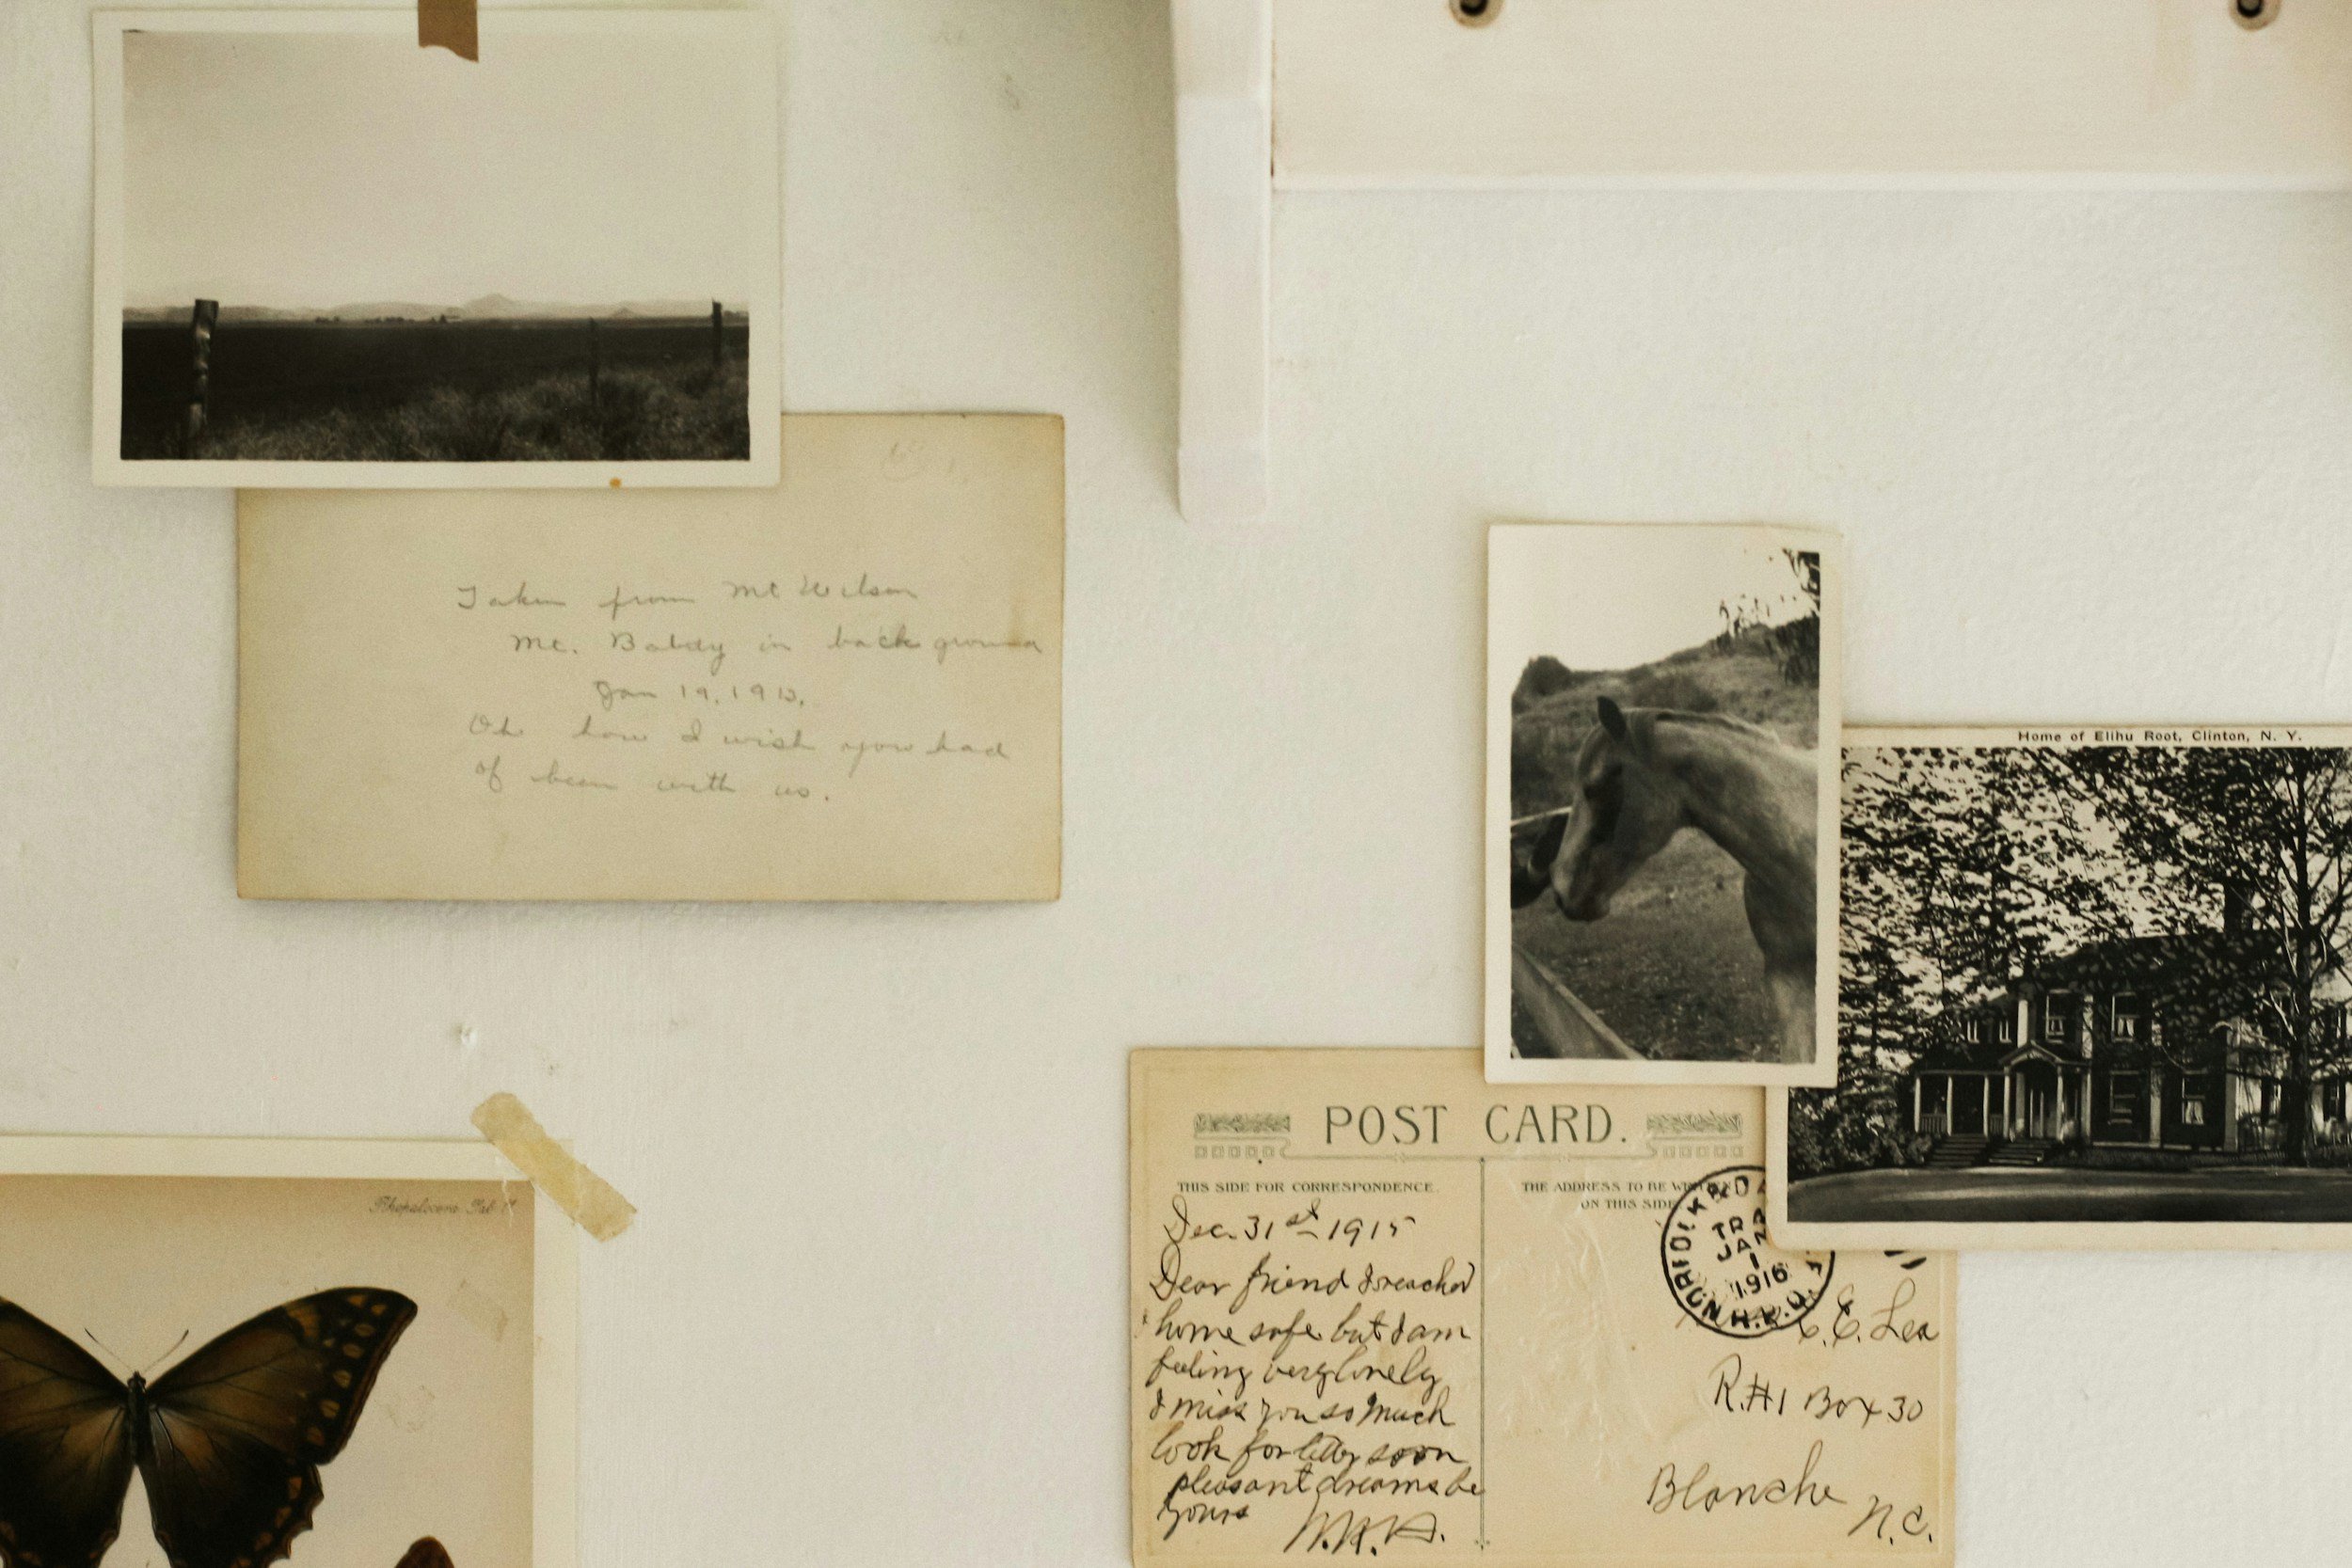 Taken from Mt Wilson
Mt. Baldy in back ground
Jan 19, 1913.
Oh how I wish you had
of been with us.
Home of Elihu Root, Clinton, N. Y.
POST CARD.
THIS SIDE FOR CORRESPONDENCE.
THE ADDRESS TO BE
ON THIS SIDE
Dec. 31st 1915
Dear friend I reached
home safe but I am
feeling very lonely
I miss you so much
look for letter soon
pleasant dreams be
yours
TR
JAN
1
1916
R.P.O.
C. E. Lea
R.#1 Box 30
Blanche
N.C.
Rhopalocera